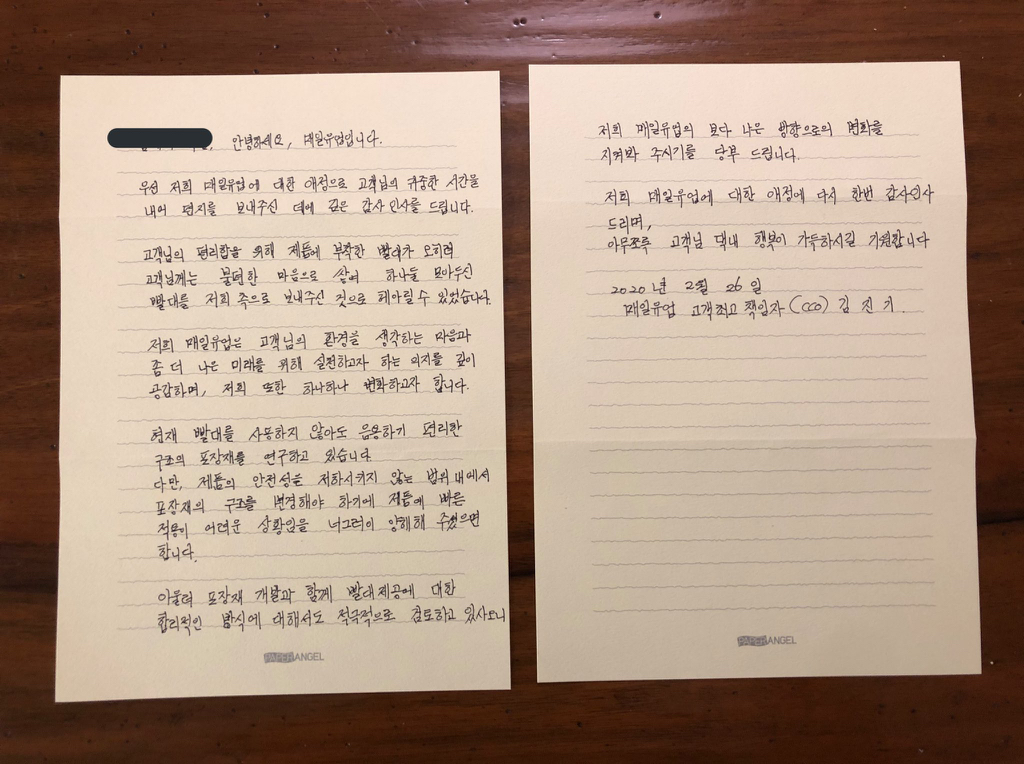 안녕하세요, 매일유업입니다.
우선 저희 매일유업에 대한 애정으로 고객님의 귀중한 시간을
내어 편지를 보내주신 데에 깊은 감사 인사를 드립니다.
고객님의 편리함을 위해 제품에 부착한 빨대가 오히려
고객님께는 불편한 마음으로 쌓여 하나둘 모아두신
빨대를 저희 쪽으로 보내주신 것으로 헤아릴 수 있었습니다.
저희 매일유업은 고객님의 환경을 생각하는 마음과
좀 더 나은 미래를 위해 실천하고자 하는 의지를 깊이
공감하며, 저희 또한 하나하나 변화하고자 합니다.
현재 빨대를 사용하지 않아도 음용하기 편리한
구조의 포장재를 연구하고 있습니다.
다만, 제품의 안전성을 저하시키지 않는 범위 내에서
포장재의 구조를 변경해야 하기에 제품에 빠른
적용이 어려운 상황임을 너그러이 양해해 주셨으면
합니다.
아울러 포장재 개발과 함께 빨대제공에 대한
합리적인 방식에 대해서도 적극적으로 검토하고 있사오니
PAPER ANGEL
저희 매일유업의 보다 나은 방향으로의 변화를
지켜봐 주시기를 당부 드립니다.
저희 매일유업에 대한 애정에 다시 한번 감사인사
드리며,
아무쪼록 고객님 댁내 행복이 가득하시길 기원합니다
2020년 2월 26일
매일유업 고객최고책임자(CCO) 김진기.
PAPER ANGEL